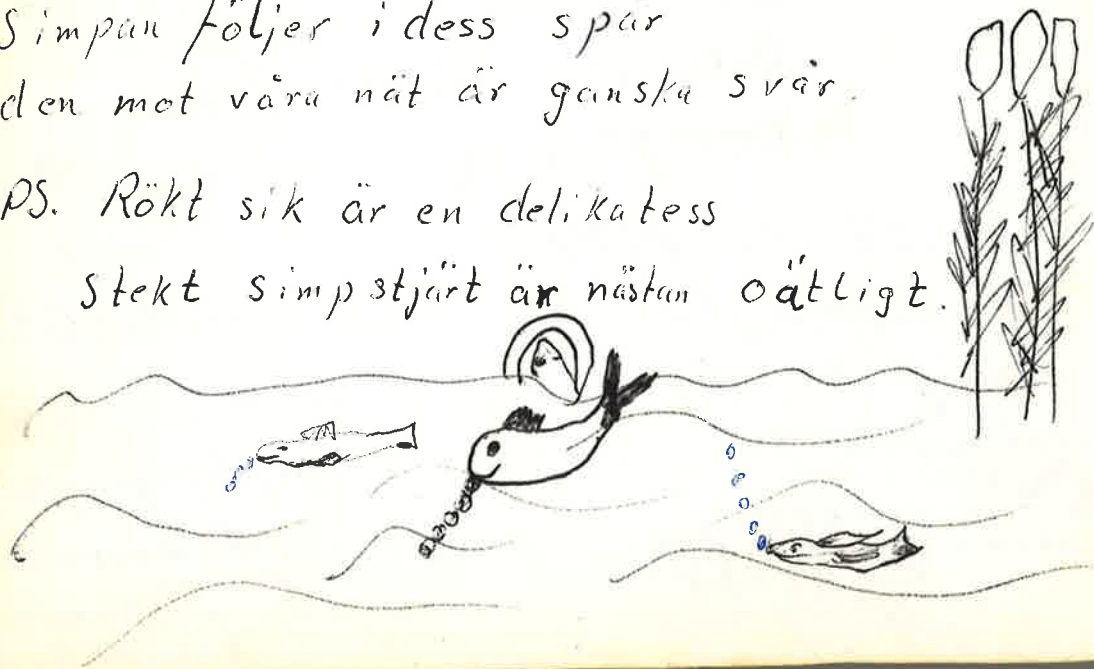 Simpan följer i dess spår
den mot våra nät är ganska svår.
PS. Rökt sik är en delikatess
Stekt simpstjärt är nästan oätligt.